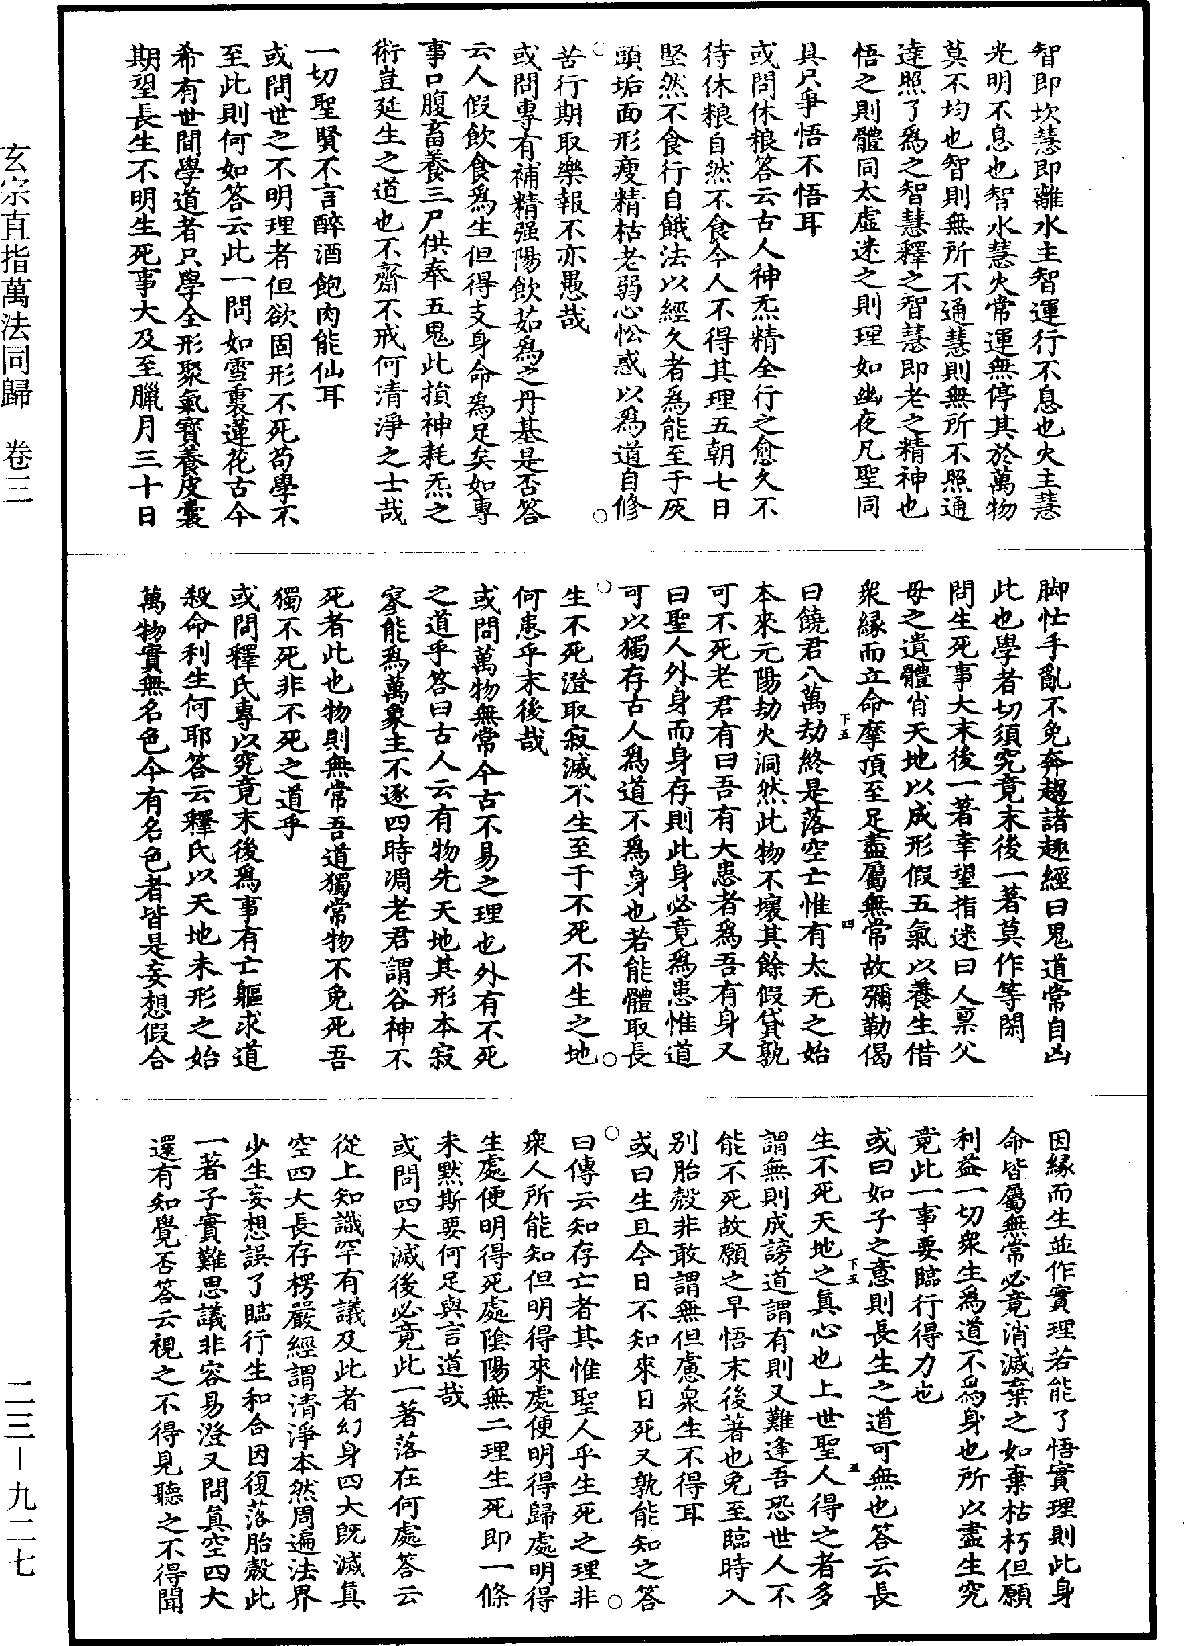 智即坎慧即離水主智運行不息也火主慧
光明不息也智水慧火常運無停其於萬物
莫不均也智則無所不通慧則無所不照通
達照了爲之智慧釋之智慧即老之精神也
悟之則體同太虛迷之則理如幽夜凡聖同
具只爭悟不悟耳
或問休粮答云古人神炁精全行之愈久不
待休粮自然不食今人不得其理五朝七日
堅然不食行自餓法以經久者爲能至于灰
頭垢面形瘦精枯老弱心忪惑以爲道自修
苦行期取樂報不亦愚哉
或問專有補精强陽飲茹爲之丹基是否答
云人假飲食爲生但得支身命爲足矣如專
事口腹畜養三尸供奉五鬼此損神耗炁之
術豈延生之道也不齋不戒何清淨之士哉
一切聖賢不言醉酒飽肉能仙耳
或問世之不明理者但欲固形不死苟學不
至此則何如答云此一問如雪裏蓮花古今
希有世間學道者只學全形聚氣寶養皮囊
期望長生不明生死事大及至臘月三十日
脚忙手亂不免奔趨諸趣經曰鬼道常自凶
此也學者切須究竟末後一著莫作等閑
問生死事大末後一著幸望指迷曰人禀父
母之遺體肖天地以成形假五氣以養生借
衆緣而立命摩頂至足盡屬無常故彌勒偈
曰饒君八萬劫終是落空亡惟有太无之始
本來元陽劫火洞然此物不壞其餘假貸孰
可不死老君有曰吾有大患者爲吾有身又
曰聖人外身而身存則此身必竟爲患惟道
可以獨存古人爲道不爲身也若能體取長
生不死澄取寂滅不生至于不死不生之地
何患乎末後哉
或問萬物無常今古不易之理也外有不死
之道乎答曰古人云有物先天地其形本寂
寥能爲萬象主不逐四時凋老君謂谷神不
死者此也物則無常吾道獨常物不免死吾
獨不死非不死之道乎
或問釋氏專以究竟末後爲事有亡軀求道
殺命利生何耶答云釋氏以天地未形之始
萬物實無名色今有名色者皆是妄想假合
因緣而生並作實理若能了悟實理則此身
命皆屬無常必竟消滅棄之如棄枯朽但願
利益一切衆生爲道不爲身也所以盡生究
竟此一事要臨行得力也
或曰如子之意則長生之道可無也答云長
生不死天地之真心也上世聖人得之者多
謂無則成謗道謂有則又難逢吾恐世人不
能不死故願之早悟末後著也免至臨時入
別胎殼非敢謂無但慮衆生不得耳
或曰生且今日不知來日死又孰能知之答
曰傳云知存亡者其惟聖人乎生死之理非
衆人所能知但明得來處便明得歸處明得
生處便明得死處陰陽無二理生死即一條
未黙斯要何足與言道哉
或問四大滅後必竟此一著落在何處答云
從上知識罕有議及此者幻身四大既滅真
空四大長存楞嚴經謂清淨本然周遍法界
少生妄想誤了臨行生和合因復落胎殼此
一著子實難思議非容易澄又問真空四大
還有知覺否答云視之不得見聽之不得聞
下五
四
下五
五
玄宗直指萬法同歸　卷三
二三－九二七